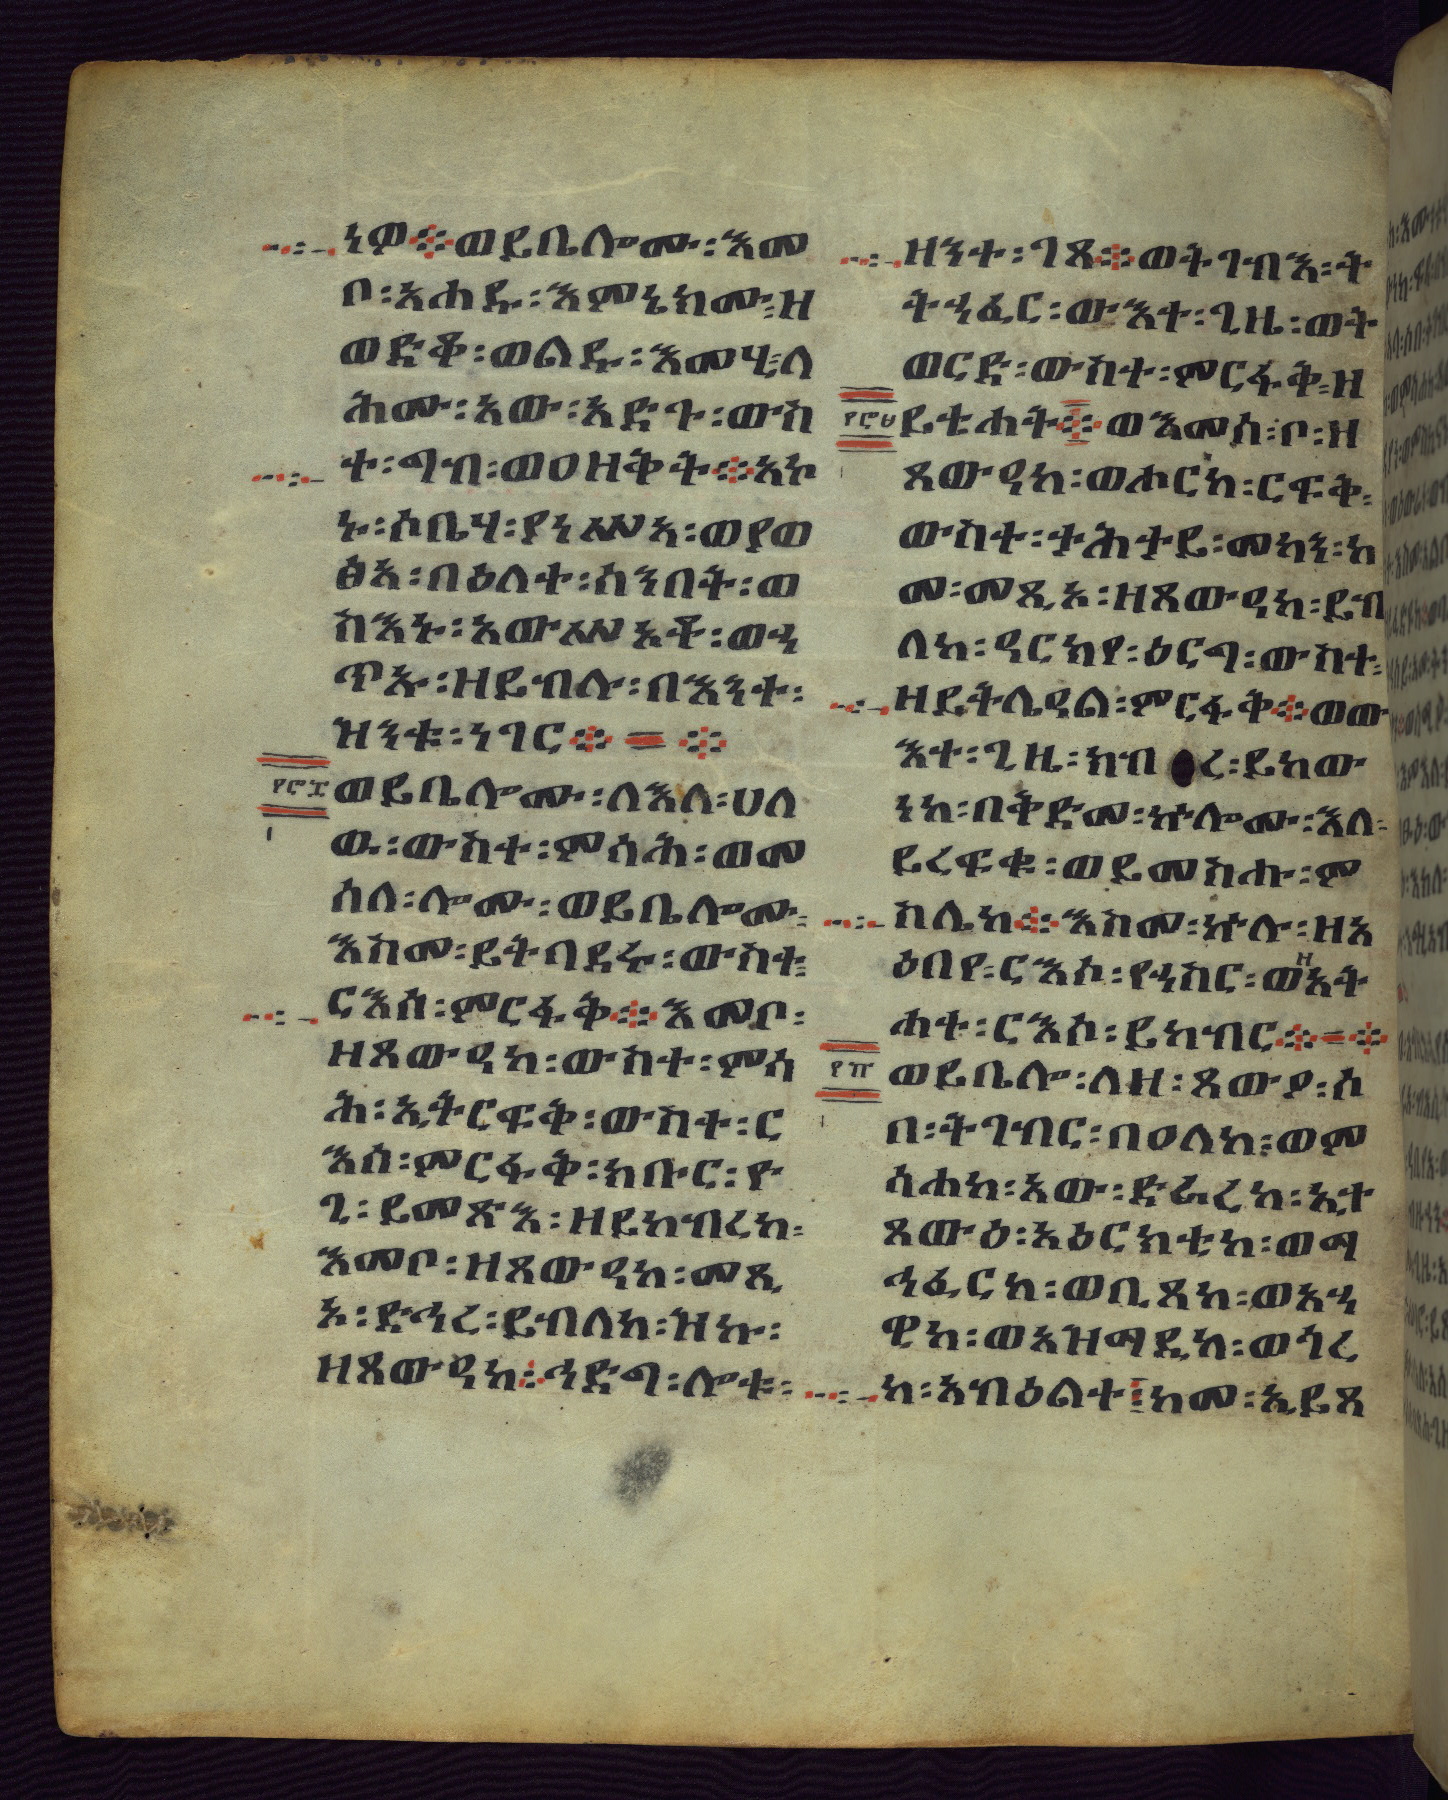 ነዎ፨ወይቤሎሙ፡እመ
ቦ፡አሐዱ፡እምኔክሙ፡ዘ
ወድቆ፡ወልዱ፡እመሂ፡ላ
ሕሙ፡አው፡አድጉ፡ውስ
ተ፡ግብ፡ወዐዘቅት፨አኮ
ኑ፡ሶቤሃ፡ያነሥአ፡ወያወ
ፅአ፡በዕለተ፡ሰንበት፡ወ
ስእኑ፡አውሥኦቶ፡ወኃ
ጥኡ፡ዘይብሉ፡በእንተ፡
ዝንቱ፡ነገር፨=፨
፻፸፯
ወይቤሎሙ፡ለእለ፡ሀለ
ዉ፡ውስተ፡ምሳሕ፡ወመ
ሰለ፡ሎሙ፡ወይቤሎሙ፡
እስመ፡ይትባደሩ፡ውስተ፡
ርእሰ፡ምርፋቅ፨እመቦ፡
ዘጸውዓከ፡ውስተ፡ምሳ
ሕ፡ኢትርፍቅ፡ውስተ፡ር
እሰ፡ምርፋቅ፡ክቡር፡ዮ
ጊ፡ይመጽእ፡ዘይከብረከ፡
እመቦ፡ዘጸውዓከ፡መጺ
ኦ፡ድኅረ፡ይብለከ፡ዝኩ፡
ዘጸውዓከ፡ኅድግ፡ሎቱ፡
ዘንተ፡ገጸ፨ወትገብእ፡ት
ትኃፊር፡ውእተ፡ጊዜ፡ወት
ወርድ፡ውስተ፡ምርፋቅ፡ዘ
፻፸፱
ይቲሐት፨ወእመሰ፡ቦ፡ዘ
ጸውዓከ፡ወሖርከ፡ርፍቅ፡
ውስተ፡ተሕተይ፡መካን፡ከ
መ፡መጺኦ፡ዘጸውዓከ፡ይብ
ለከ፡ዓርክየ፡ዕርግ፡ውስተ፡
ዘይትሌዓል፡ምርፋቅ፨ወው
እተ፡ጊዜ፡ክብረ፡ይከው
ነከ፡በቅድመ፡ኵሎሙ፡እለ፡
ይረፍቁ፡ወይመስሑ፡ም
ስሌከ፨እስመ፡ኵሉ፡ዘአ
ዕበየ፡ርእሶ፡የኃስር፡ወዘአት
ሐተ፡ርእሶ፡ይከብር፨=፨
፻፹
ወይቤሎ፡ለዘ፡ጸውዖ፡ሶ
በ፡ትገብር፡በዐለከ፡ወም
ሳሐከ፡አው፡ድራረከ፡ኢተ
ጸውዕ፡አዕርክቲከ፡ወማ
ኅፊርከ፡ወቢጸከ፡ወአኃ
ዊከ፡ወአዝማዲከ፡ወጎረ
ከ፡አብዕልተ፡ከመ፡ኢይጸ